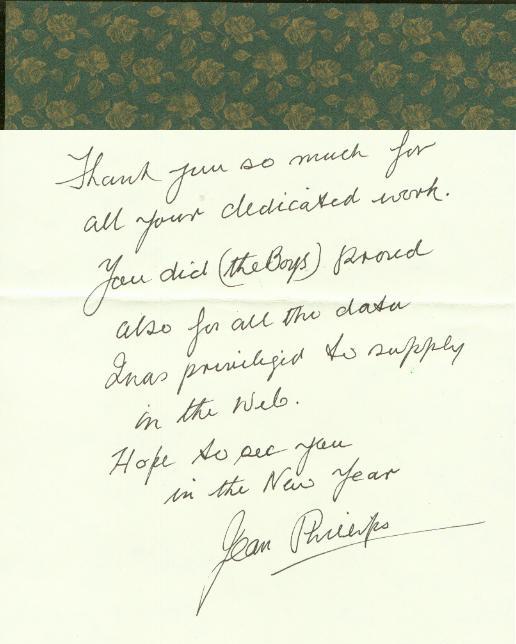 Thank you so much for
all your dedicated work.
You did (the Boys) proud
also for all the data
I was priviliged to supply
in the Web.
Hope to see you
in the New Year
Jean Phillips